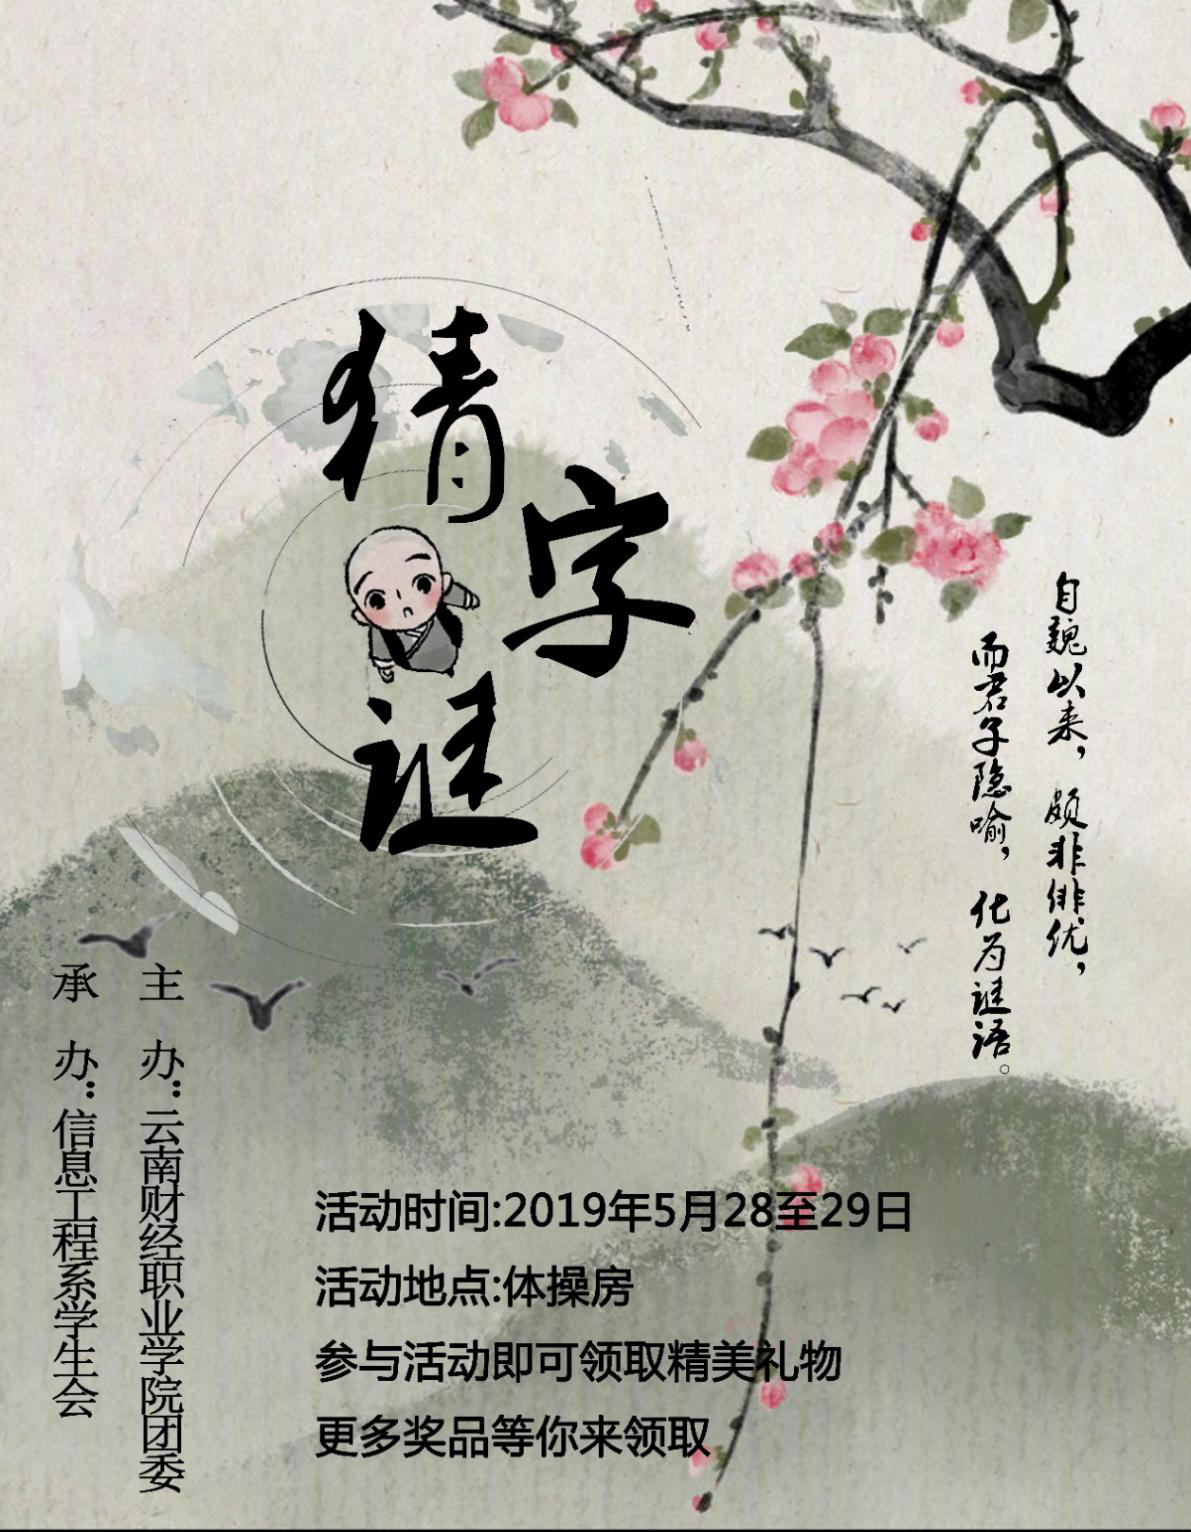 猜字谜
自魏以来，颇非俳优，
而君子隐喻，化为谜语。
主 办：云南财经职业学院团委
承 办：信息工程系学生会
活动时间:2019年5月28至29日
活动地点:体操房
参与活动即可领取精美礼物
更多奖品等你来领取